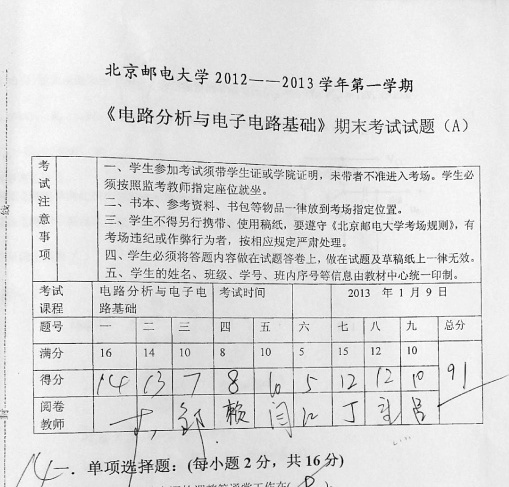 北京邮电大学 2012——2013 学年第一学期
《电路分析与电子电路基础》期末考试试题（A）
考试注意事项
一、学生参加考试须带学生证或学院证明，未带者不准进入考场。学生必
须按照监考教师指定座位就坐。
二、书本、参考资料、书包等物品一律放到考场指定位置。
三、学生不得另行携带、使用稿纸，要遵守《北京邮电大学考场规则》，有
考场违纪或作弊行为者，按相应规定严肃处理。
四、学生必须将答题内容做在试题答卷上，做在试题及草稿纸上一律无效。
五、学生的姓名、班级、学号、班内序号等信息由教材中心统一印制。
考试课程 电路分析与电子电路基础 考试时间 2013 年 1 月 9 日
题号 一 二 三 四 五 六 七 八 九 总分
满分 16 14 10 8 10 5 15 12 10
得分 14 13 7 8 10 5 12 12 10 91
阅卷教师 邹 赖 闫 江 丁 吕
14 一．单项选择题：(每小题 2 分，共 16 分)